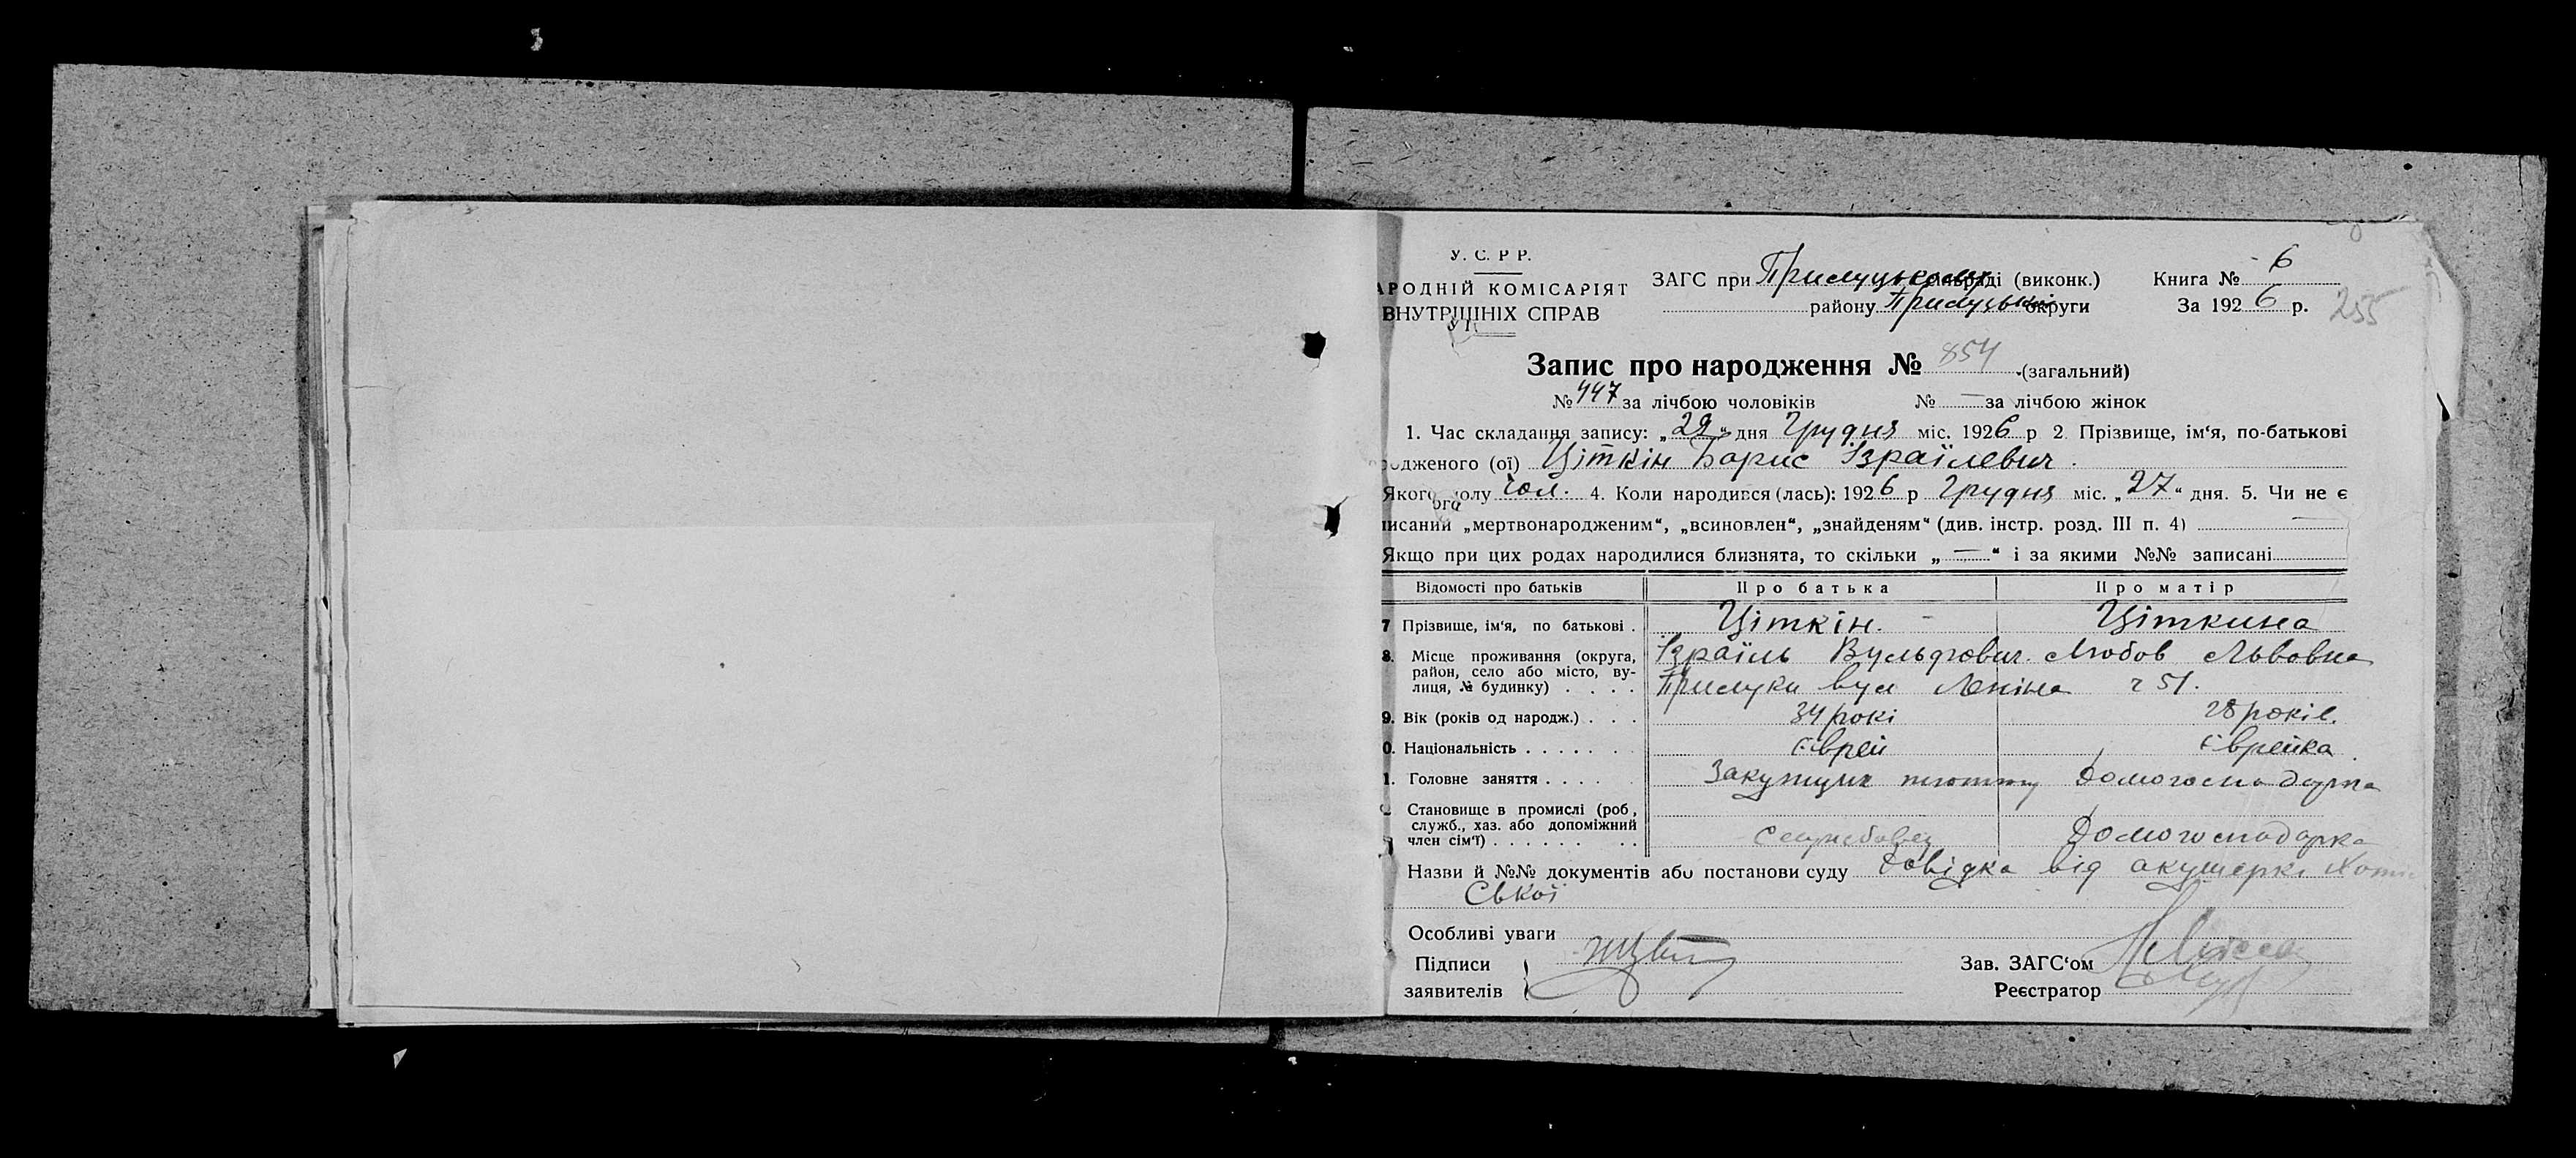 У. С. Р Р.
АРОДНІЙ КОМІСАРІЯТ
ВНУТРІШНІХ СПРАВ
ЗАГС при Прилуцькому раді (виконк.) Книга № 6
району Прилуцької округи За 1926 р. 255
Запис про народження № 854 (загальний)
№ 447 за лічбою чоловіків № — за лічбою жінок
1. Час складання запису: „29“ дня Грудня міс. 1926 р 2. Прізвище, ім‘я, по-батькові
родженого (ої) Ціткін Борис Ізраїлевич.
Якого полу чол. 4. Коли народився (лась): 1926 р Грудня міс. „27“ дня. 5. Чи не є
писаний „мертвонародженим“, „всиновлен“, „знайденям“ (див. інстр. розд. III п. 4) —
Якщо при цих родах народилися близнята, то скільки „—“ і за якими №№ записані
Відомості про батьків Про батька Про матір
7 Прізвище, ім‘я, по батькові . Ціткін. Ціткина
8. Місце проживання (округа, район, село або місто, ву- лиця, № будинку) . . . . Ізраїль Вульфович. Любов Львовна
Прилуки вул Леніна ч 51.
9. Вік (років од народж.) . . . 34 рокі 28 років.
0. Національність . . . . . . Єврей Єврейка
1. Головне заняття . . . . Закупщик тютюну Домогосподарка
Становище в промислі (роб, служб., хаз. або допоміжний член сім‘ї) . . . . . . . . Службовец Домогосподарка
Назви й №№ документів або постанови суду Довідка від акушеркі
ської
Особливі уваги
Підписи
заявителів
Зав. ЗАГС‘ом
Реєстратор